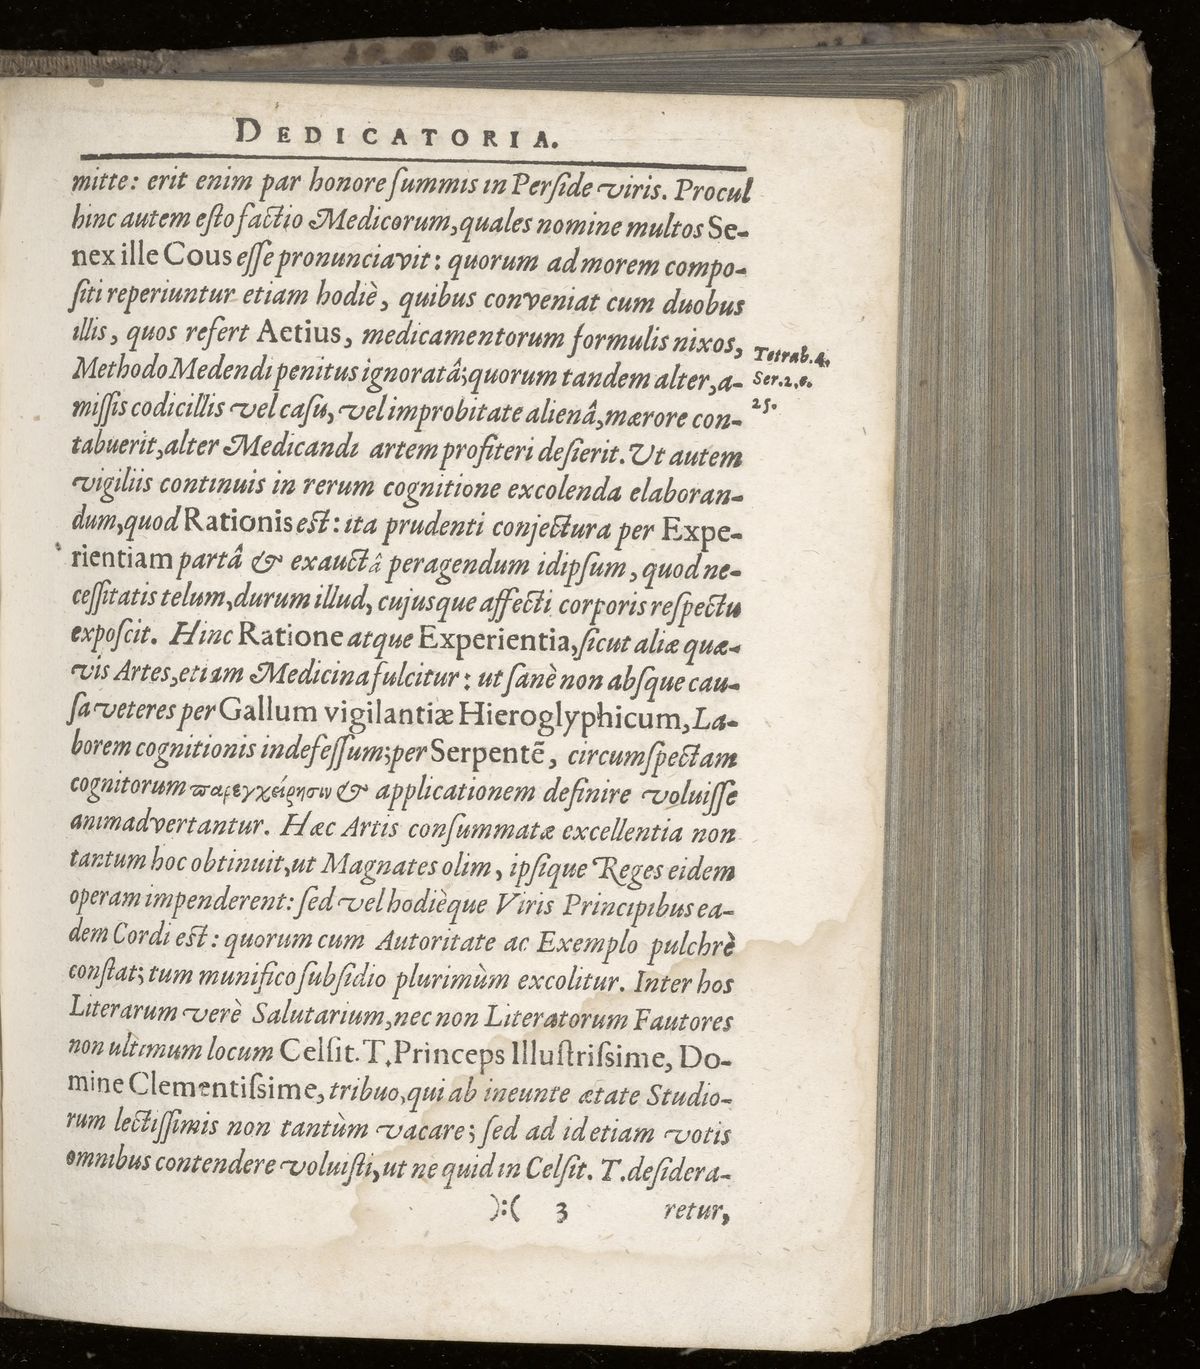 DEDICATORIA.
mitte: erit enim par honore ſummis in Perſide viris. Procul
hinc autem eſto factio Medicorum, quales nomine multos Se-
nex ille Cous eſſe pronunciavit: quorum ad morem compo-
ſiti reperiuntur etiam hodiè, quibus conveniat cum duobus
illis, quos refert Aetius, medicamentorum formulis nixos,
Tetrab. 4.
Methodo Medendi penitus ignoratâ; quorum tandem alter, a-
Ser. 2. c.
miſſis codicillis vel caſu, vel improbitate alienâ, mærore con-
25.
tabuerit, alter Medicandi artem profiteri deſierit. Ut autem
vigiliis continuis in rerum cognitione excolenda elaboran-
dum, quod Rationis eſt: ita prudenti conjectura per Expe-
rientiam partâ & exauctâ peragendum idipſum, quod ne-
ceſſitatis telum, durum illud, cujusque affecti corporis reſpectu
expoſcit. Hinc Ratione atque Experientia, ſicut aliæ quæ-
vis Artes, etiam Medicina fulcitur: ut ſanè non absque cau-
ſa veteres per Gallum vigilantiæ Hieroglyphicum, La-
borem cognitionis indefeſſum; per Serpentẽ, circumſpectam
cognitorum παρεγχείρησιν & applicationem definire voluiſſe
animadvertantur. Hæc Artis conſummatæ excellentia non
tantum hoc obtinuit, ut Magnates olim, ipſique Reges eidem
operam impenderent: ſed vel hodièque Viris Principibus ea-
dem Cordi eſt: quorum cum Autoritate ac Exemplo pulchrè
conſtat; tum munifico ſubſidio plurimùm excolitur. Inter hos
Literarum verè Salutarium, nec non Literatorum Fautores
non ultimum locum Celſit. T. Princeps Illuſtriſsime, Do-
mine Clementiſsime, tribuo, qui ab ineunte ætate Studio-
rum lectiſſimis non tantùm vacare; ſed ad id etiam votis
omnibus contendere voluiſti, ut ne quid in Celſit. T. deſidera-
):( 3 retur,